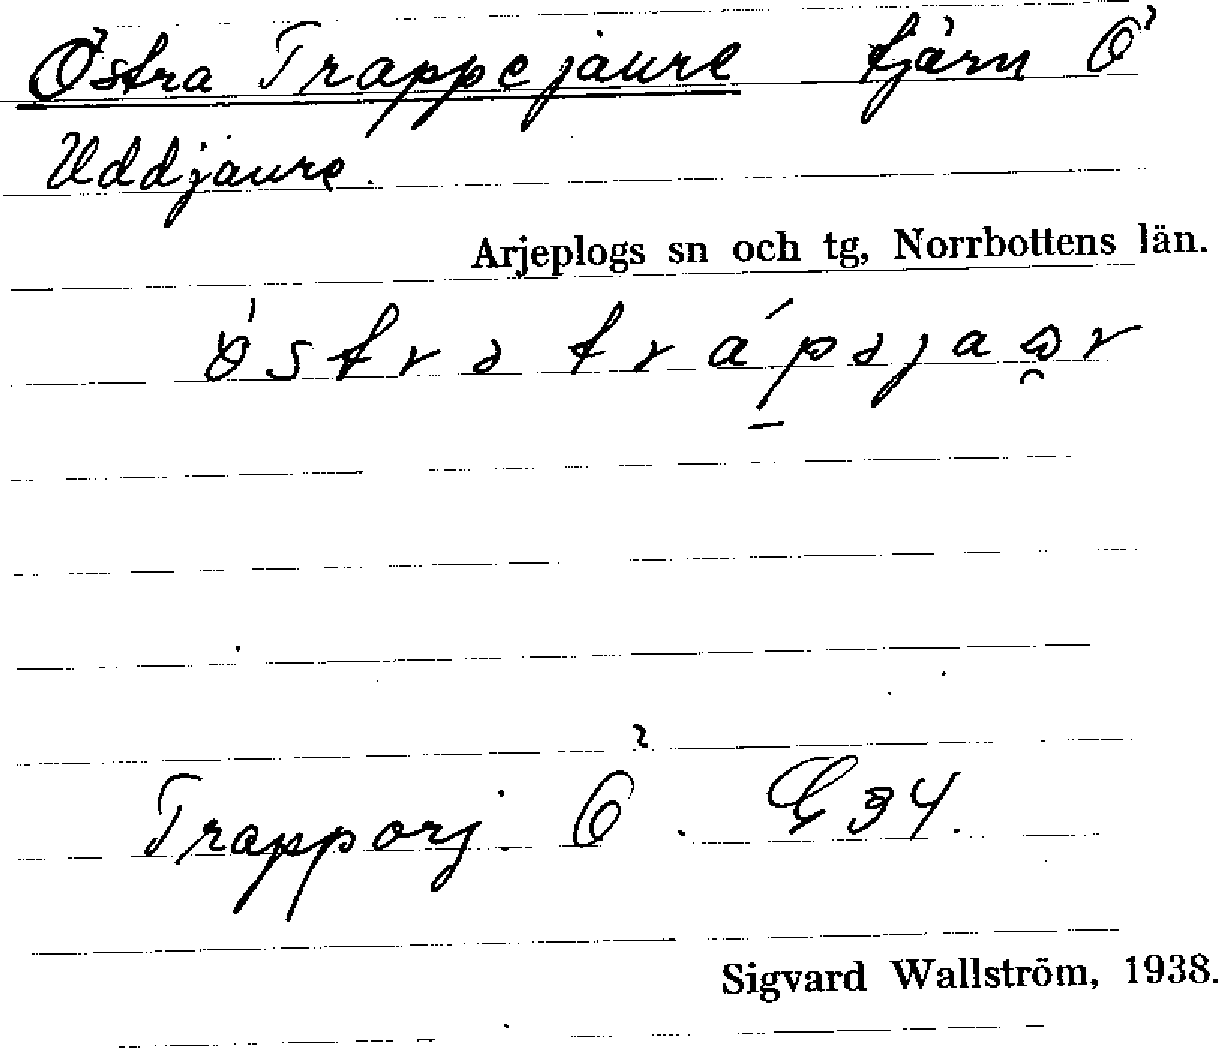 Östra Trappejaure tjärn Ö
Uddjaure.
Arjeplogs sn och tg, Norrbottens län.
östrə trápəjaωr
Trapporj. Ö. G34.
Sigvard Wallström, 1938.